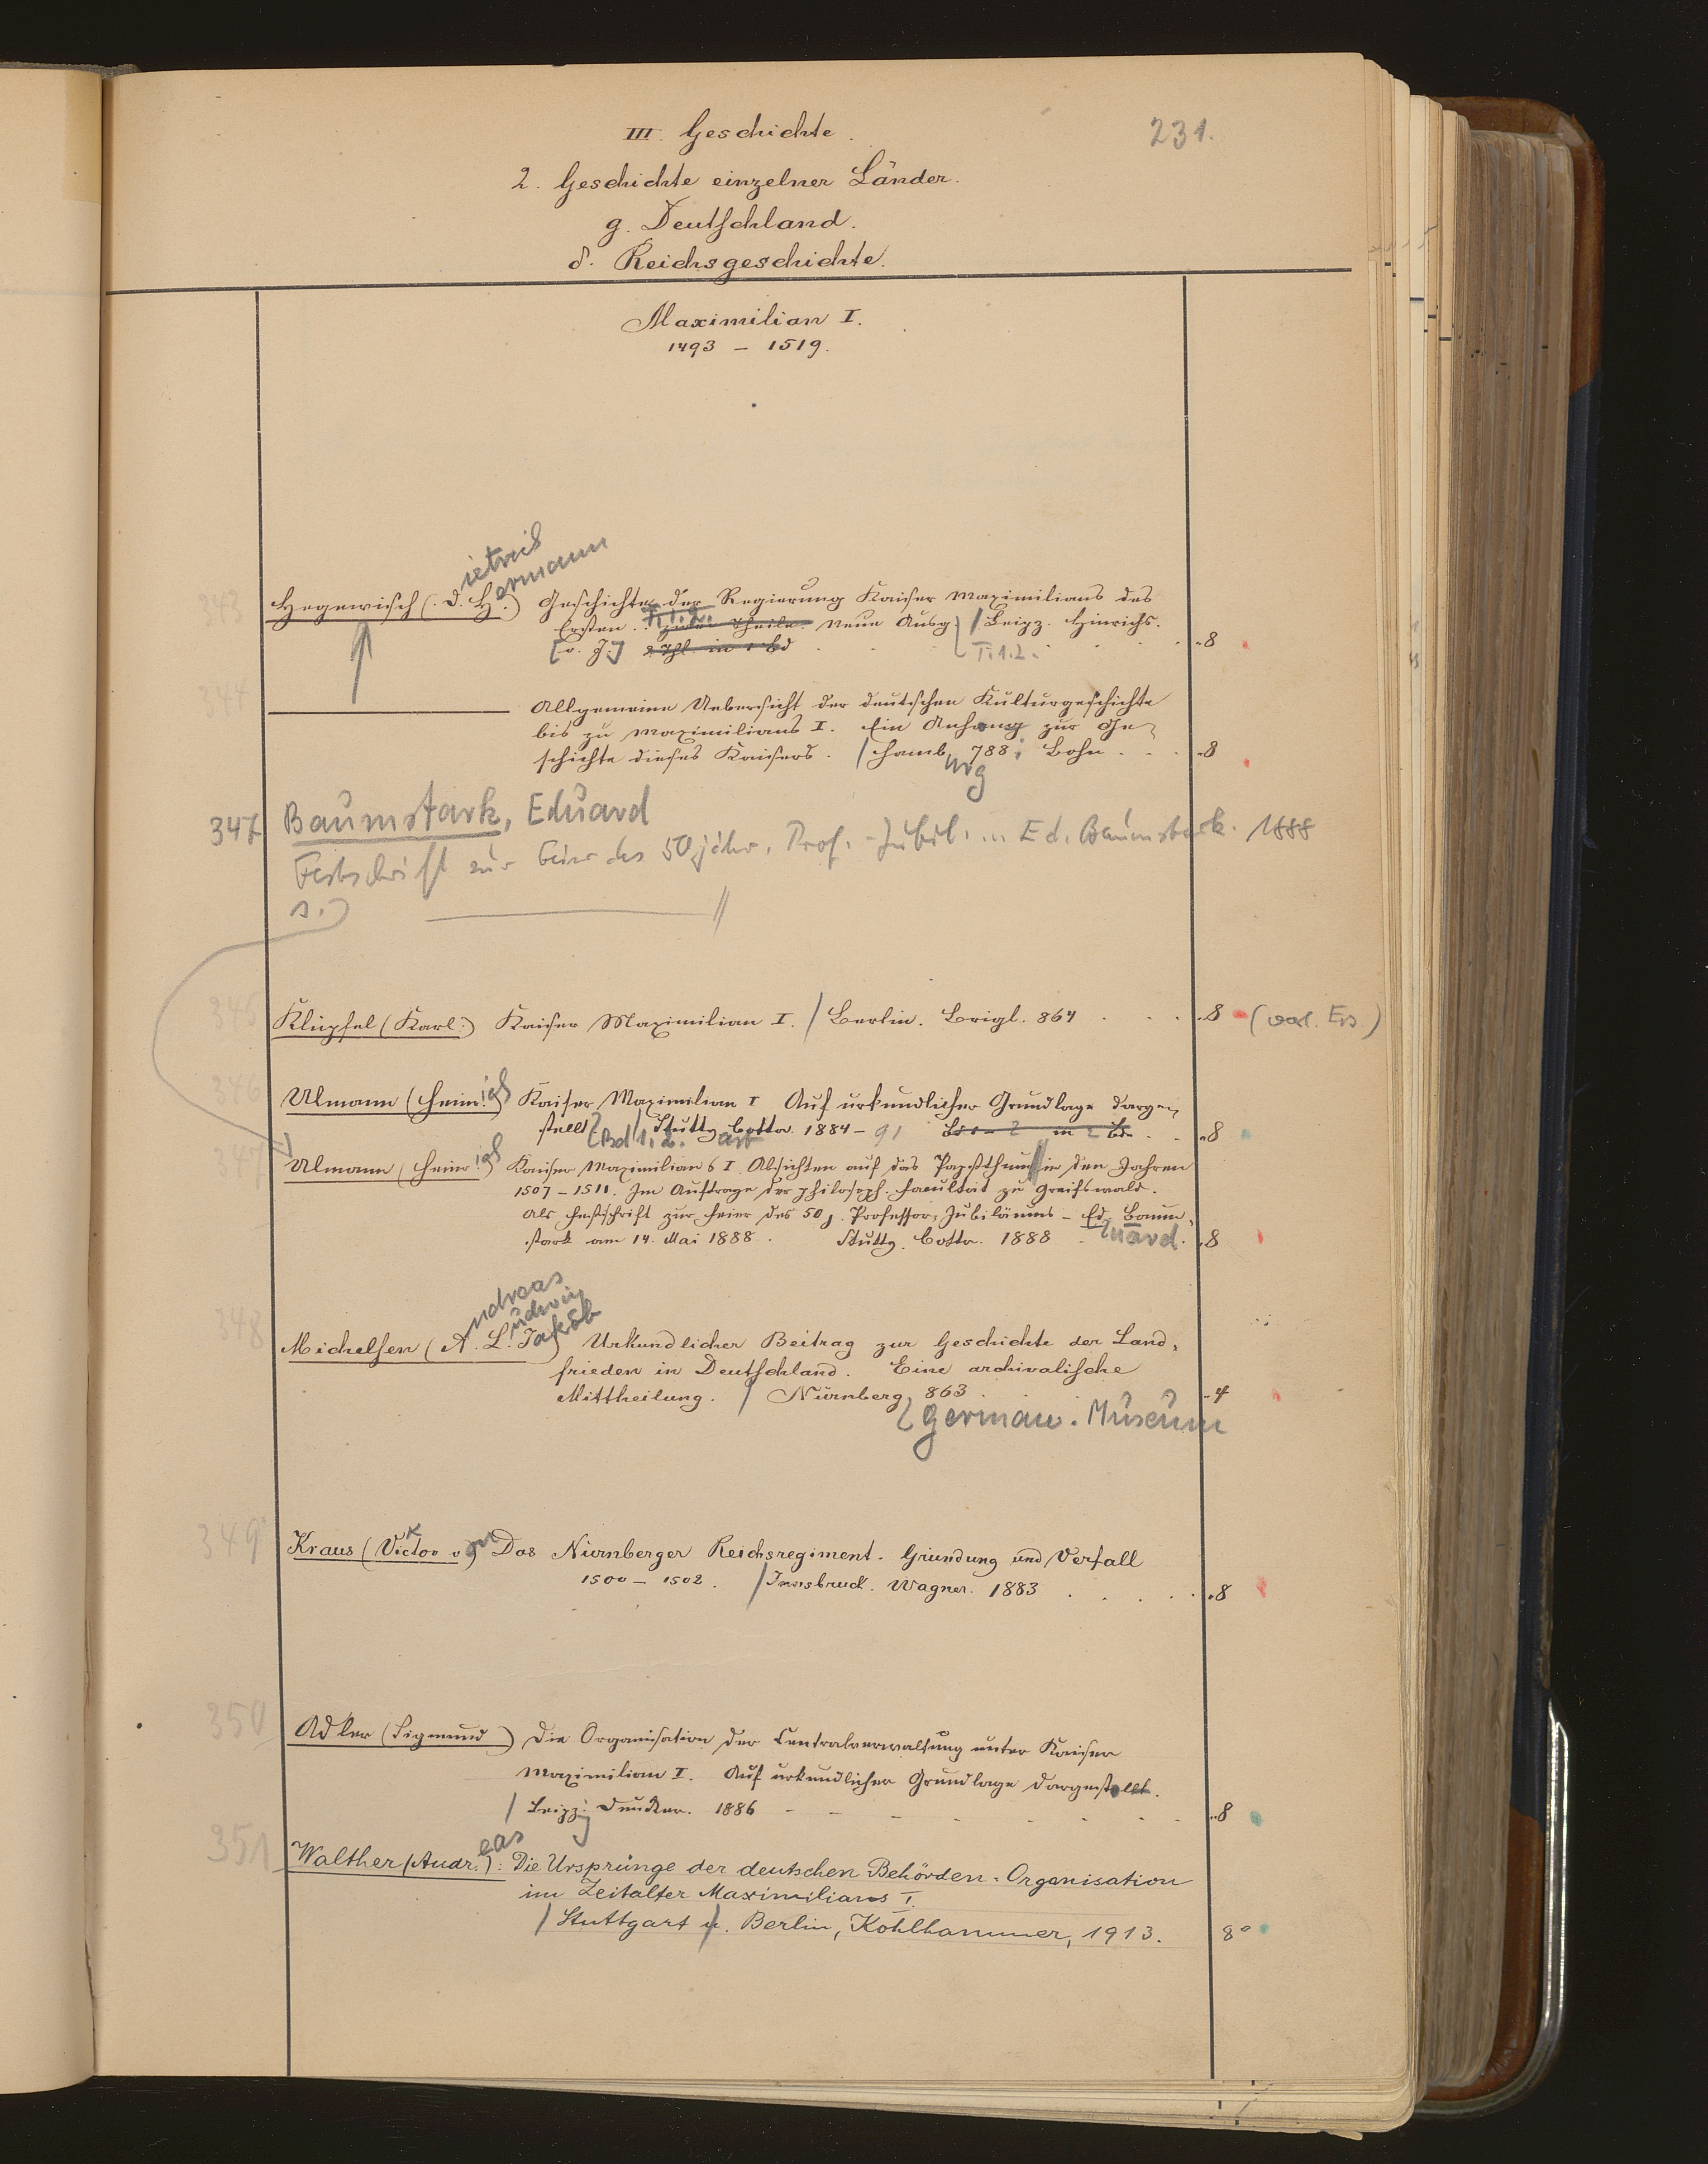 III. Geschichte.
231.
2. Geschichte einzelner Länder.
g. Deutschland.
δ. Reichsgeschichte.
Maximilian I.
1493 – 1519.
ietrich
ermann
343 Hegewisch (D. H.) Geschichte der Regierung Kaiser Maximilians des
Ersten. T. 1. 2. zwei Theile. Neue Ausg. / Leipz. Hinrichs.
[o. J.] 2 Thl. in 1 Bd T. 1.2. 8
344 Allgemeine Uebersicht der deutschen Kulturgeschichte
bis zu Maximilians I. Ein Anhang zur Ge-
schichte dieses Kaisers. / Hamb. 788. Bohn 8
urg
347 Baumstark, Eduard
Festschrift zur Feier des 50jähr. Prof.-Jubil. ... Ed. Baumstark. 1888
s.
345 Klüpfel (Karl.) Kaiser Maximilian I. / Berlin. Brigl. 864 8 (verl. Ers.)
346 Ulmann (Heinr.ich) Kaiser Maximilian I Auf urkundlicher Grundlage darge-
stellt Bd 1. 2. / Stuttg.art Cotta. 1884–91 Bd 1 – 2 in 2 Bdn. 8
347 Ulmann (Heinr.ich) Kaiser Maximilians I. Absichten auf das Papstthum in den Jahren
1507–1511. Im Auftrage der philosoph. Facultät zu Greifswald.
Als Festschrift zur Feier des 50 j. Professor-Jubiläums – Ed. Baum-
stark am 14. Mai 1888. Stuttg. Cotta. 1888 uard. 8
ndreas
udwig
348 Michelsen (A. L. Jakob) Urkundlicher Beitrag zur Geschichte der Land-
frieden in Deutschland. Eine archivalische
Mittheilung. / Nürnberg, 863. 4
German. Museum
349 Kraus (Victor von) Das Nürnberger Reichsregiment. Gründung und Verfall
k
1500 – 1502. / Innsbruck. Wagner. 1883 8
350 Adler (Sigmund) Die Organisation der Centralverwaltung unter Kaiser
Maximilian I. Auf urkundlicher Grundlage dargestellt.
/ Leipzig Duncker. 1886 8
351 Walther (Andr.eas): Die Ursprünge der deutschen Behörden-Organisation
im Zeitalter Maximilians I.
/ Stuttgart u. Berlin, Kohlhammer, 1913. 8°